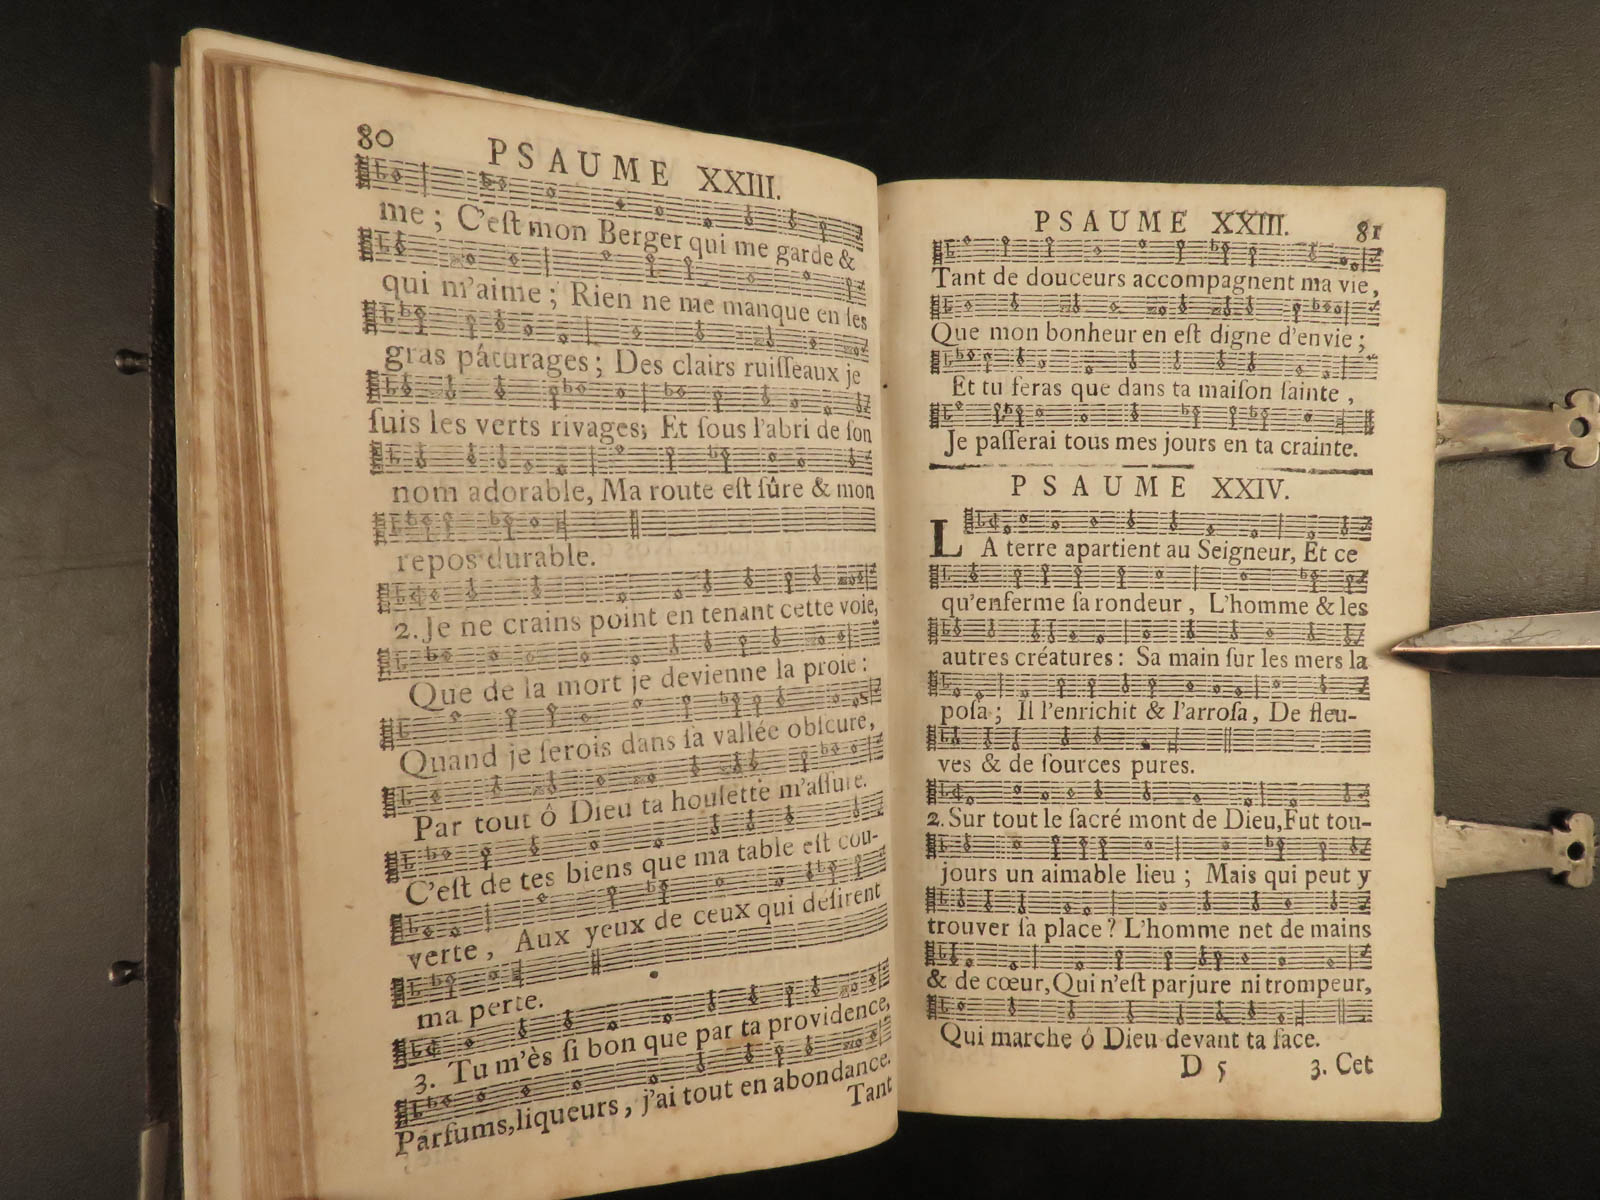 80
PSAUME XXIII.
me ; C'eſt mon Berger qui me garde &
qui m'aime ; Rien ne me manque en ſes
gras pâturages ; Des clairs ruiſſeaux je
ſuis les verts rivages; Et ſous l'abri de ſon
nom adorable, Ma route eſt ſûre & mon
repos durable.
2. Je ne crains point en tenant cette voie,
Que de la mort je devienne la proie :
Quand je ſerois dans ſa vallée obſcure,
Par tout ô Dieu ta houlette m'aſſure.
C'eſt de tes biens que ma table eſt cou-
verte, Aux yeux de ceux qui déſirent
ma perte.
3. Tu m'ès ſi bon que par ta providence,
Parfums, liqueurs, j'ai tout en abondance.
Tant
PSAUME XXIII.
81
Tant de douceurs accompagnent ma vie,
Que mon bonheur en eſt digne d'envie ;
Et tu feras que dans ta maiſon ſainte,
Je paſſerai tous mes jours en ta crainte.
PSAUME XXIV.
LA terre apartient au Seigneur, Et ce
qu'enferme ſa rondeur, L'homme & les
autres créatures : Sa main ſur les mers la
poſa ; Il l'enrichit & l'arroſa, De fleu-
ves & de ſources pures.
2. Sur tout le ſacré mont de Dieu, Fut tou-
jours un aimable lieu ; Mais qui peut y
trouver ſa place? L'homme net de mains
& de cœur, Qui n'eſt parjure ni trompeur,
Qui marche ô Dieu devant ta face.
D 5
3. Cet